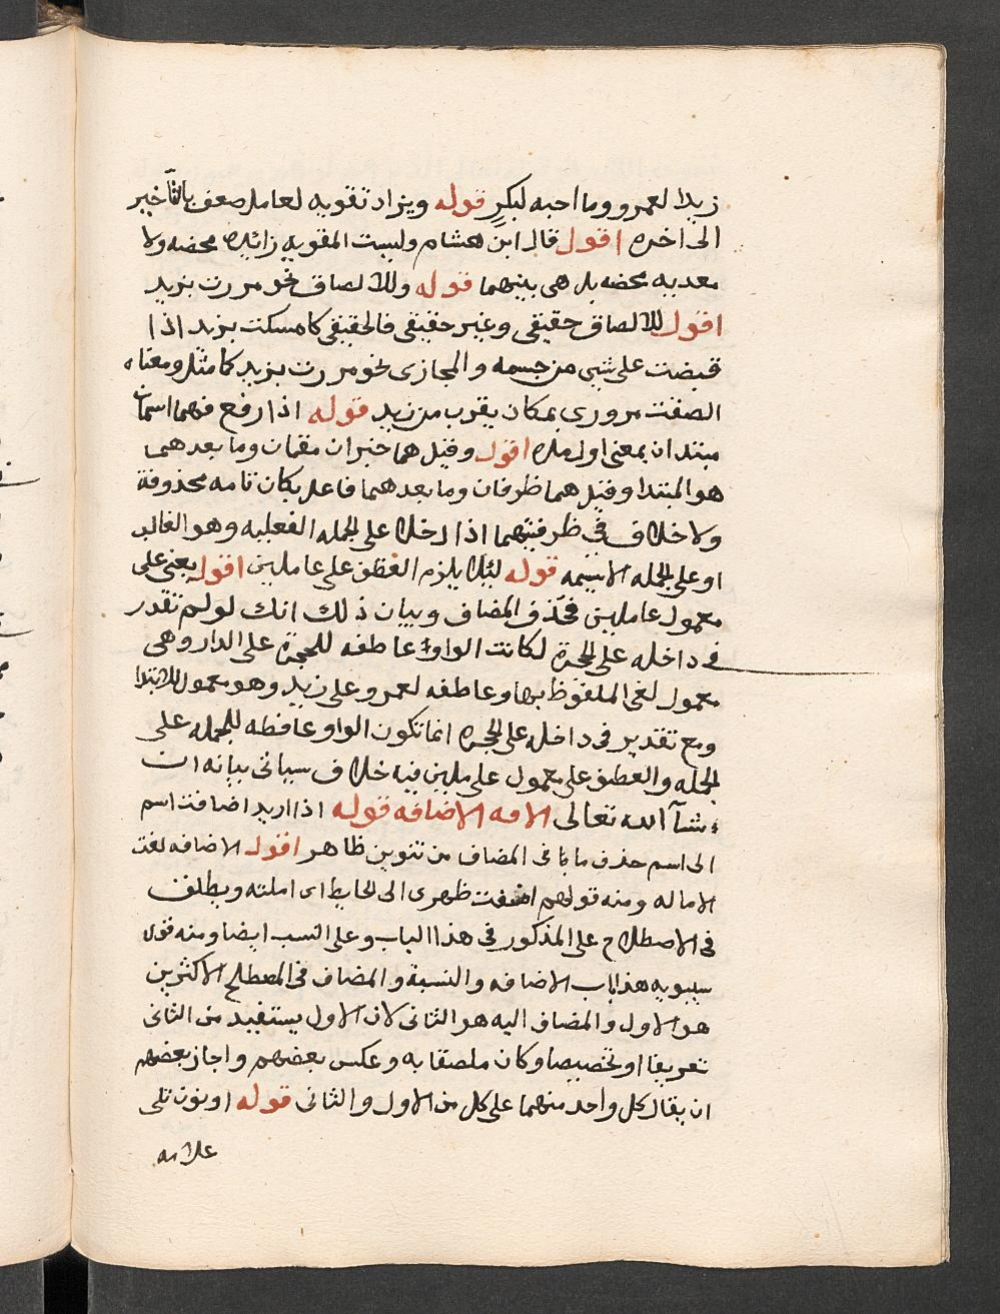 زيدا لعمرو وما احبه لبكرٍ قوله ويزاد تقويه لعامل ضعف بالتأخير
الى اخره اقول قال ابن هشام وليست المقويه زائده محضه ولا
معديه محضه بل هى بينهما قوله وللالصاق نحو مررت بزيد
اقول للالصاق حقيقى وغير حقيقى فالحقيقى كامسكت بزيد اذا
قبضت على شى من جسمه والمجازى نحو مررت بزيد كما مثل ومعناه
الصقت مرورى بمكان يقرب من زيد قوله اذا رفع فهما اسمان
مبتدان بمعنى اول مده اقول وقيل هما خبران مقدمان وما بعدهما
هو المبتدا وقيل هما ظرفان وما بعدهما فاعل بكان تامه محذوفة
ولا خلاف فى ظرفيتهما اذا دخلا على الجمله الفعليه وهو الغالب
او على الجمله الاسميه قوله ليلا يلزم العطف على عاملين اقول يعنى على
معمول عاملين فحذف المضاف وبيان ذلك انك لو لم تقدر
فى داخله على الحجرة لكانت الواو عاطفه للحجرة على الدار وهى
معمول لفى الملفوظ بها وعاطفه لعمرو على زيد وهو معمول للابتدا
ومع تقدير فى داخله على الحجره انما تكون الواو عافطه للجمله على
الجمله والعطف على معمول عاملين فيه خلاف سياتى بيانه ان
شآ الله تعالى الاضافه قوله اذا اريد اضافت اسم
الى اسم حذف ما با فى المضاف من تنوين ظاهر اقول الاضافه لغت
الاماله ومنه قولهم اضفت ظهرى الى الحايط اى املته ويطلق
فى الاصطلاح على المذكور فى هذا الباب وعلى النسب ايضا ومنه قول
سيبويه هذا باب الاضافه والنسبة والمضاف فى المصطلح الاكثرين
هو الاول والمضاف اليه هو الثانى لان الاول يستفيد من الثانى
تعريفا او تخصيصا وكان ملصقا به وعكس بعضهم واجاز بعضهم
ان يقال كل واحد منهما على كل من الاول والثانى قوله او نون تلى
علامه